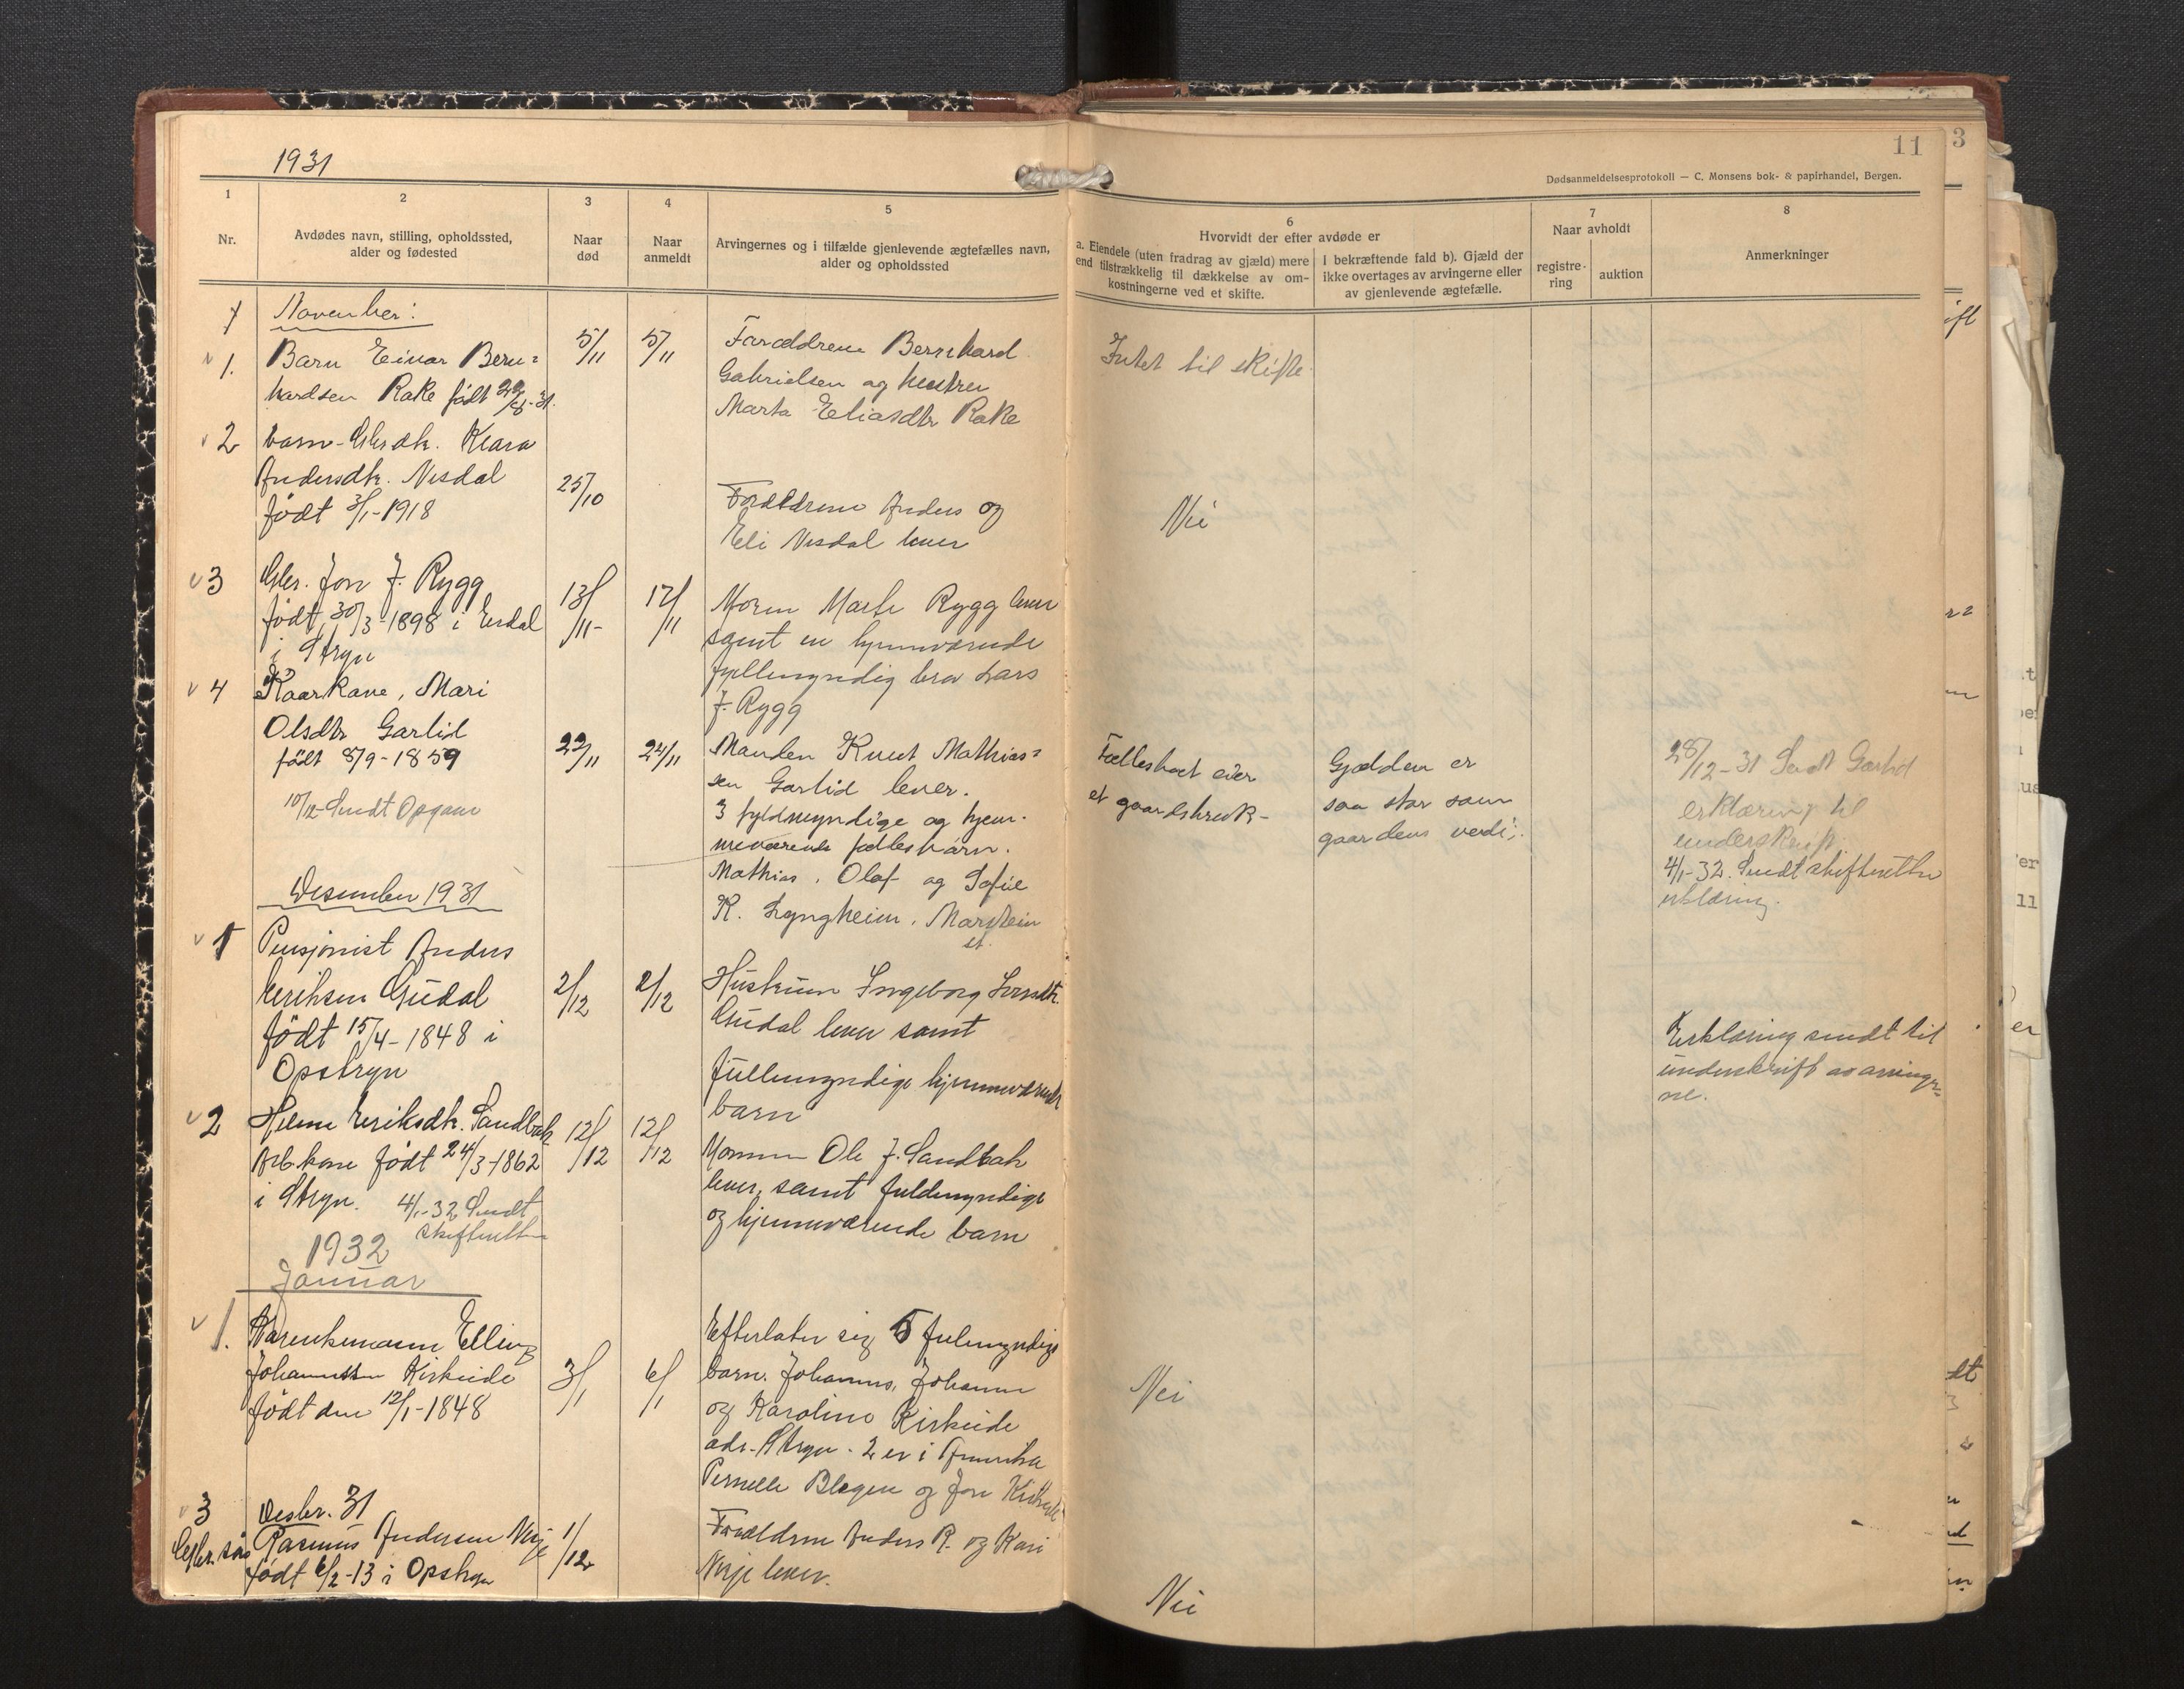 1931
11
3
Dødsanmeldelsesprotokoll — C. Monsens bok- & papirhandel, Bergen.
1
Nr.
2
Avdødes navn, stilling, opholdssted,
alder og fødested
3
Naar
død
4
Naar
anmeldt
5
Arvingernes og i tilfælde gjenlevende ægtefælles navn,
alder og opholdssted
6
Hvorvidt der efter avdøde er
a. Eiendele (uten fradrag av gjæld) mere
end tilstrækkelig til dækkelse av om-
kostningerne ved et skifte.
I bekræftende fald b). Gjæld der
ikke overtages av arvingerne eller
av gjenlevende ægtefælle.
7
Naar avholdt
registre-
ring
auktion
8
Anmerkninger
November:
1. Barn Einar Bern=
hardsen Rake født 22/8-31.
5/11
5/11
Forældrene Bernhard
Gabrielsen og hustru
Marta Eliasdtr Rake
Intet til skifte.
2 barn Klara
Andersdtr. Nesdal
født 3/1-1918
25/10
Forældrene Anders og
Eli Nesdal lever
Nei
3 Gbr. Jon J. Rygg
født 30/3-1898 i Erdal
i Stryn
13/11-
17/11
Moren Marte Rygg lever
samt en hjemværende
fyllemyndig bror Lars
J. Rygg
4 Kaarkone, Mari
Olsdtr Garlid
født 8/9-1859
10/12-Sendt Opgave
22/11
24/11
Manden Knut Mathias=
sen Garlid lever.
3 fyldmyndige og hjem-
meværende fællesbarn.
Mathias, Olaf og Sofie
K. Lyngheim, Marstein
st.
Fællesboet eier
et gaardsbruk-
Gjælden er
saa stor som
gaardens verdi.
28/12-31 Sendt Garlid
erklæring til
underskrift.
4/1-32. Sendt skifteretten
erklæring.
Desember 1931
1 Pensjonist Anders
Eriksen Gudal
født 15/4-1848 i
Opstryn
2/12
2/12
Hustruen Ingeborg
Gudal lever samt
fullmyndige hjemmeværende
barn
Erklæring sendt til
underskrift av arvinge=
ne.
2 Eriksdtr. Sandbak
Arb.kone født 24/3-1862
i Stryn. 4/1-32 Sendt
skifteretten
12/12
12/12
Mannen Ole J. Sandbak
lever, samt fuldmyndige
og hjemmeværende barn
1932
Januar
1. Elling
Johannessen Kirkeide
født den 12/1-1848
3/1
6/1
Efterlater sig 5 fulmyndige
barn. Johannes, Johanne
og Karoline Kirkeide
adr. Stryn. 2 er i Amerika
Pernelle Blegen og Jon Kirkeide
Nei
3 Desbr. 31
Gbr. søn Rasmus Andersen Nesje
født 6/2-13 i Opstryn
1/12
Forældrene Anders R. og Kari
Nesje lever.
Nei